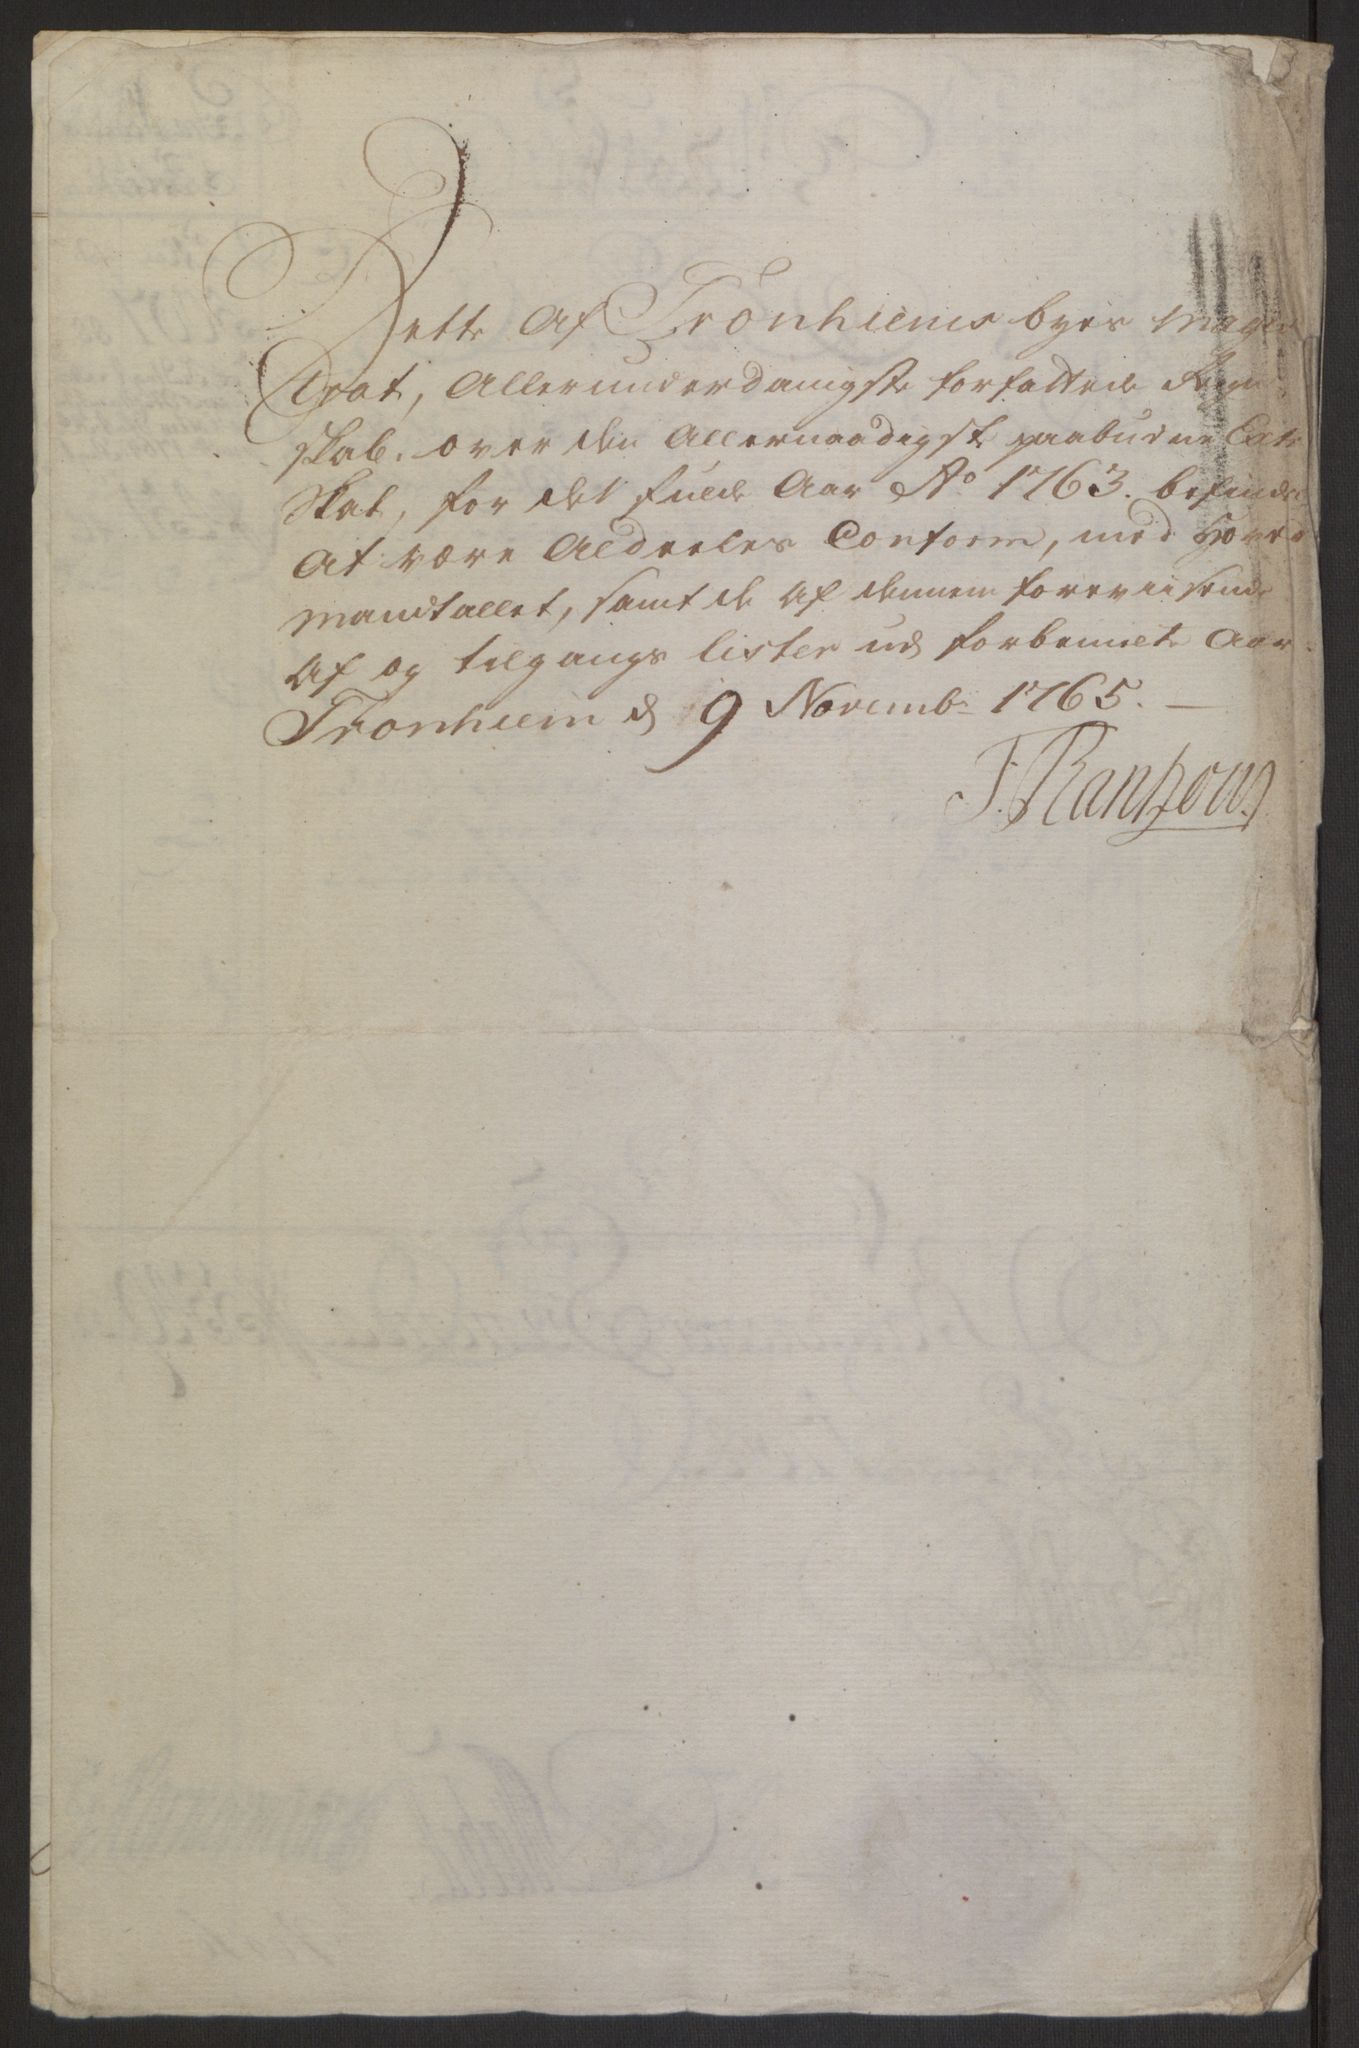 Dette Af Tronhiems byes Magi
strat, Allerunderdanigste forfattede Regn
skab. over den Allernaadigste paabudne Extr
Skat, for det fulde Aar Ao 1763. befindes
At være Aldeeles Conform, med Hoved
Mandtallet, samt de Af dennem foreviisende
Af og tilgangs lister ud forbemelte Aar.
Tronhiem d 9 Novembr 1765.
F Rantzow